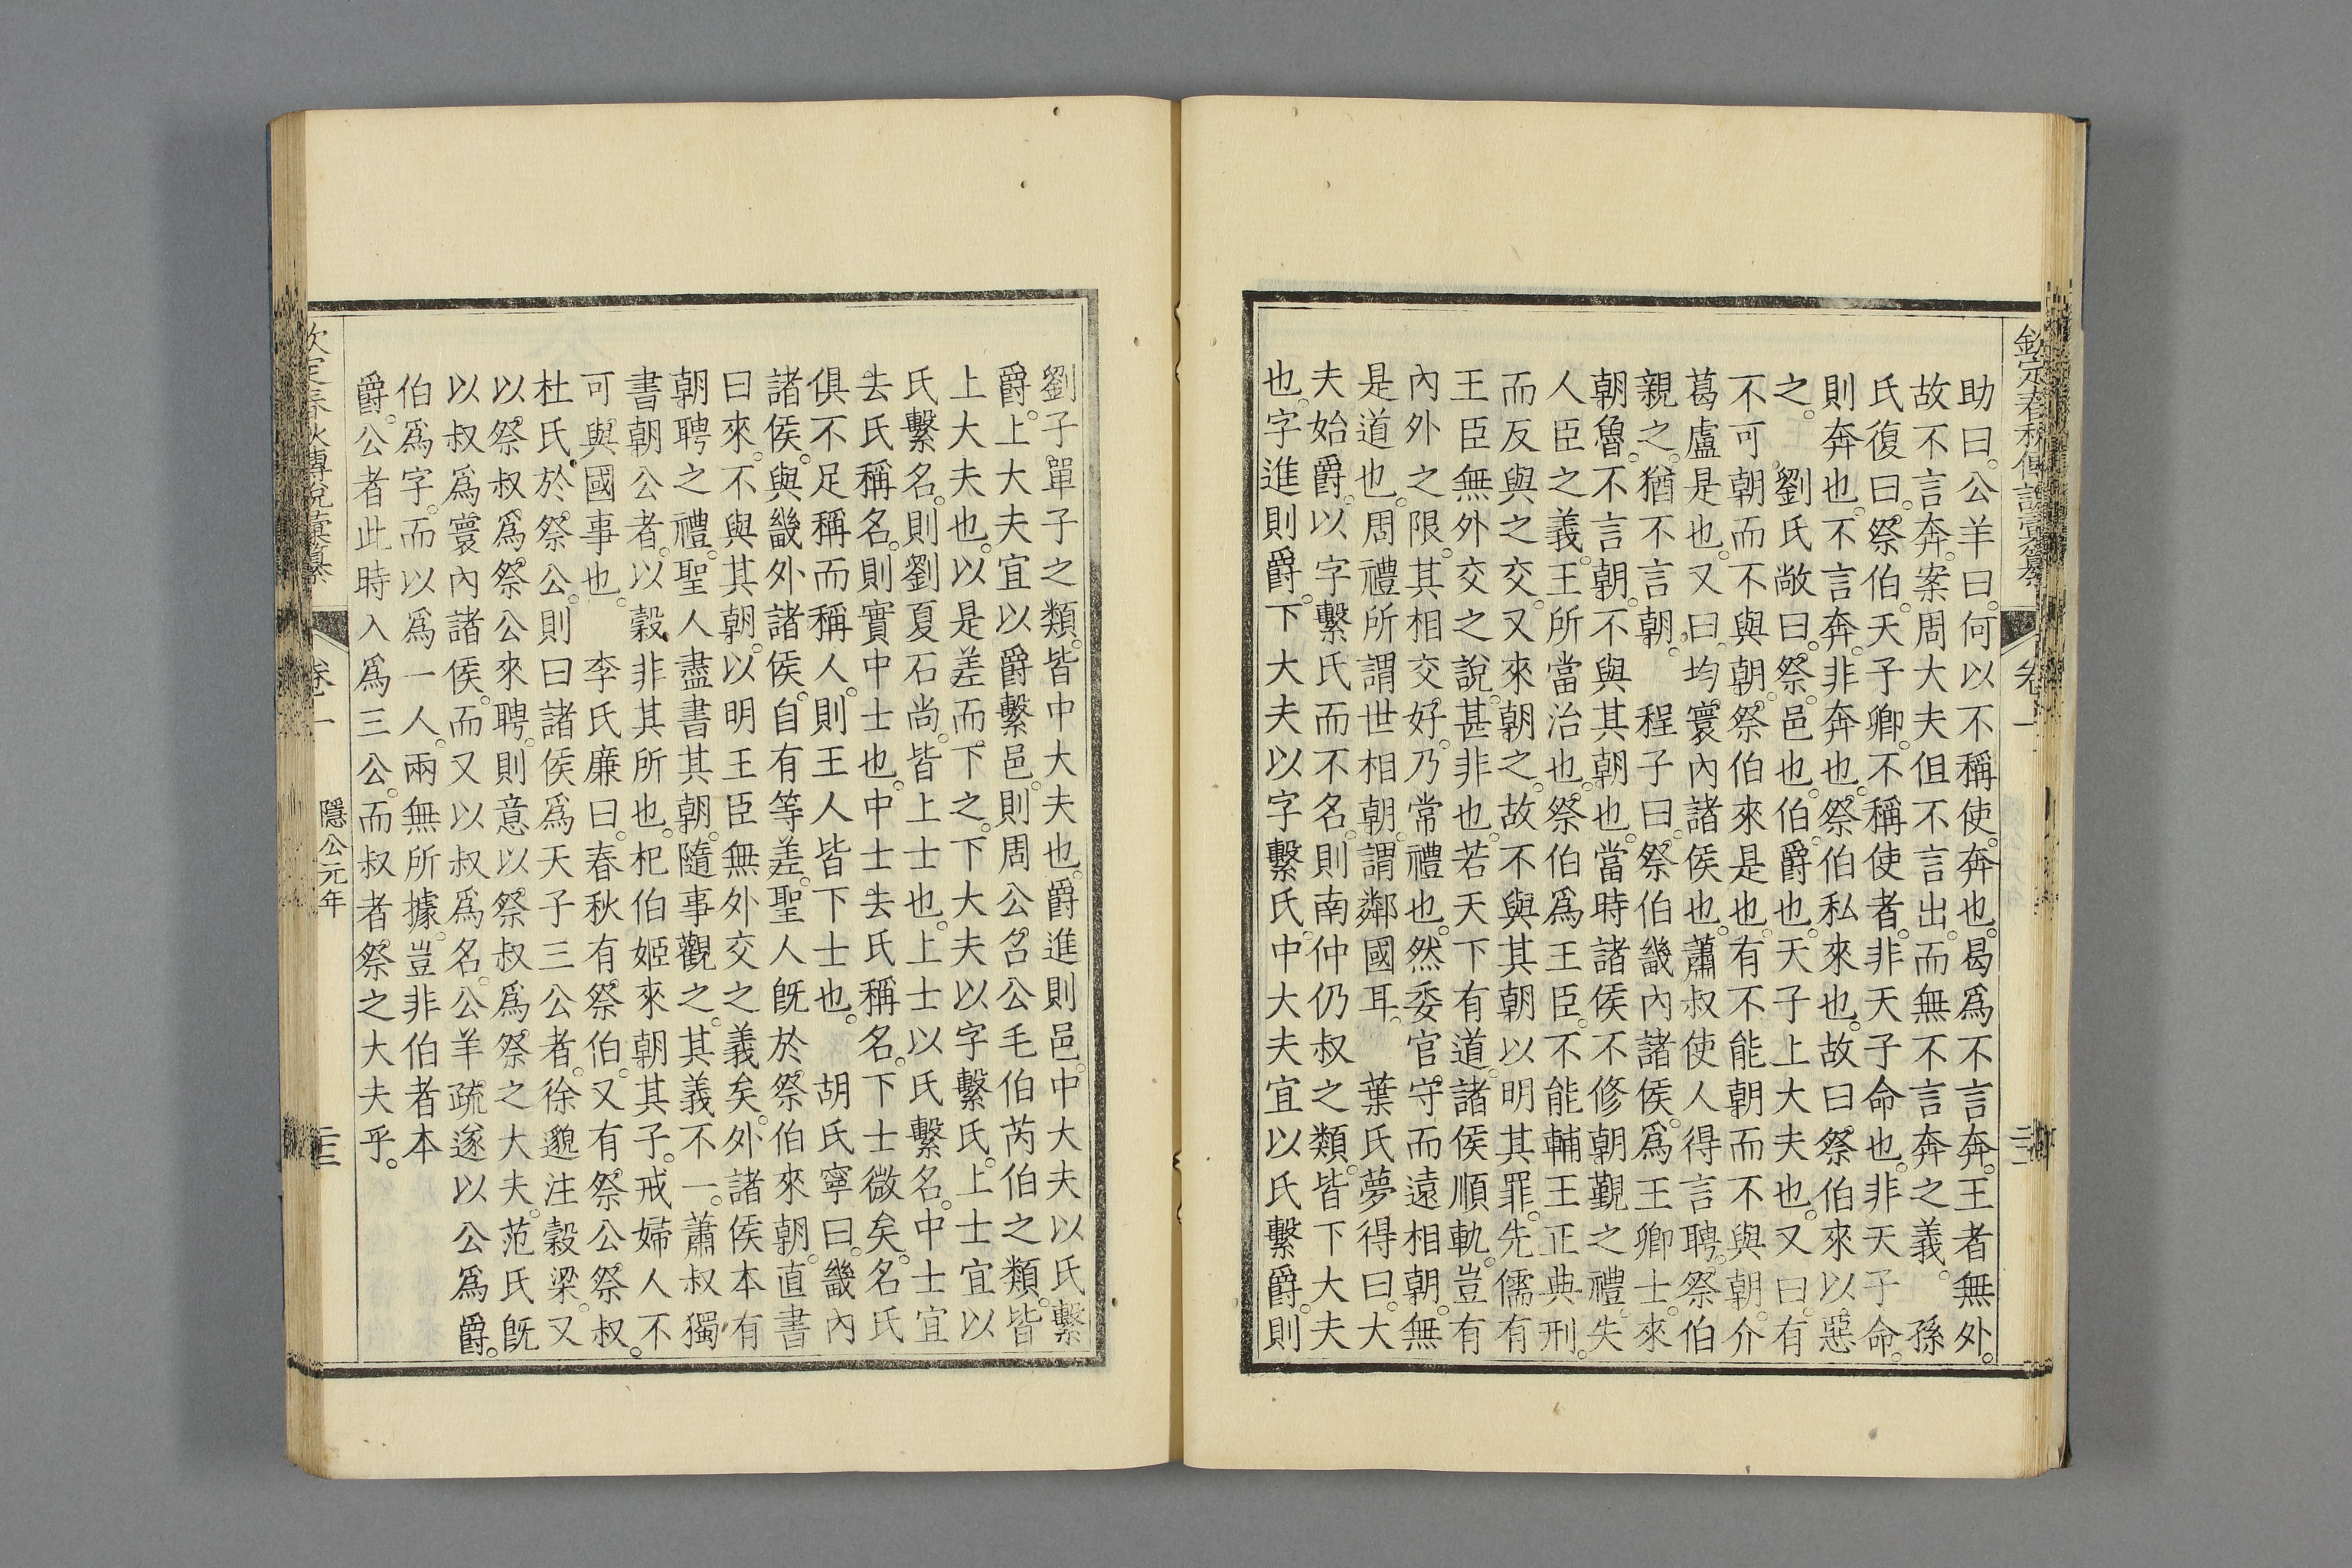 助曰。公羊曰。何以不稱使。奔也。曷爲不言奔。王者無外。
故不言奔。案周大夫但不言出。而無不言奔之義。 孫
氏復曰。祭伯。天子卿。不稱使者。非天子命也。非天子命。
則奔也。不言奔。非奔也。祭伯私來也。故曰祭伯來以惡
之。 劉氏敞曰。祭。邑也。伯。爵也。天子上大夫也。又曰。有
不可朝而不與朝。祭伯來是也。有不能朝而不與朝。介
葛盧是也。又曰。均寰內諸侯也。蕭叔使人得言聘。祭伯
親之。猶不言朝。 程子曰。祭伯畿內諸侯。爲王卿士。來
朝魯。不言朝。不與其朝也。當時諸侯不修朝覲之禮。失
人臣之義。王所當治也。祭伯爲王臣。不能輔王正典刑。
而反與之交。又來朝之。故不與其朝以明其罪。先儒有
王臣無外交之說。甚非也。若天下有道。諸侯順軌。豈有
內外之限。其相交好。乃常禮也。然委官守而遠相朝。無
是道也。周禮所謂世相朝。謂鄰國耳。 葉氏夢得曰。大
夫始爵。以字繫氏而不名。則南仲仍叔之類。皆下大夫
也。字進則爵。下大夫以字繫氏。中大夫宜以氏繫爵。則
欽定春秋傳說彙纂
卷一
劉子單子之類。皆中大夫也。爵進則邑。中大夫以氏繫
爵。上大夫宜以爵繫邑。則周公召公毛伯芮伯之類。皆
上大夫也。以是差而下之。下大夫以字繫氏。上士宜以
氏繫名。則劉夏石尚。皆上士也。上士以氏繫名。中士宜
去氏稱名。則實中士也。中士去氏稱名。下士微矣。名氏
俱不足稱而稱人。則王人皆下士也。 胡氏寧曰。畿內
諸侯。與畿外諸侯。自有等差。聖人旣於祭伯來朝。直書
曰來。不與其朝。以明王臣無外交之義矣。外諸侯本有
朝聘之禮。聖人盡書其朝。隨事觀之。其義不一。蕭叔獨
書朝公者。以穀非其所也。杞伯姬來朝其子。戒婦人不
可與國事也。 李氏廉曰。春秋有祭伯。又有祭公祭叔。
杜氏於祭公。則曰諸侯爲天子三公者。徐邈注穀梁。又
以祭叔爲祭公來聘。則意以祭叔爲祭之大夫。范氏旣
以叔爲寰內諸侯。而又以叔爲名。公羊疏。遂以公爲爵。
伯爲字。而以爲一人。兩無所據。豈非伯者本
爵。公者此時入爲三公。而叔者祭之大夫乎。
欽定春秋傳說彙纂
卷一
隱公元年